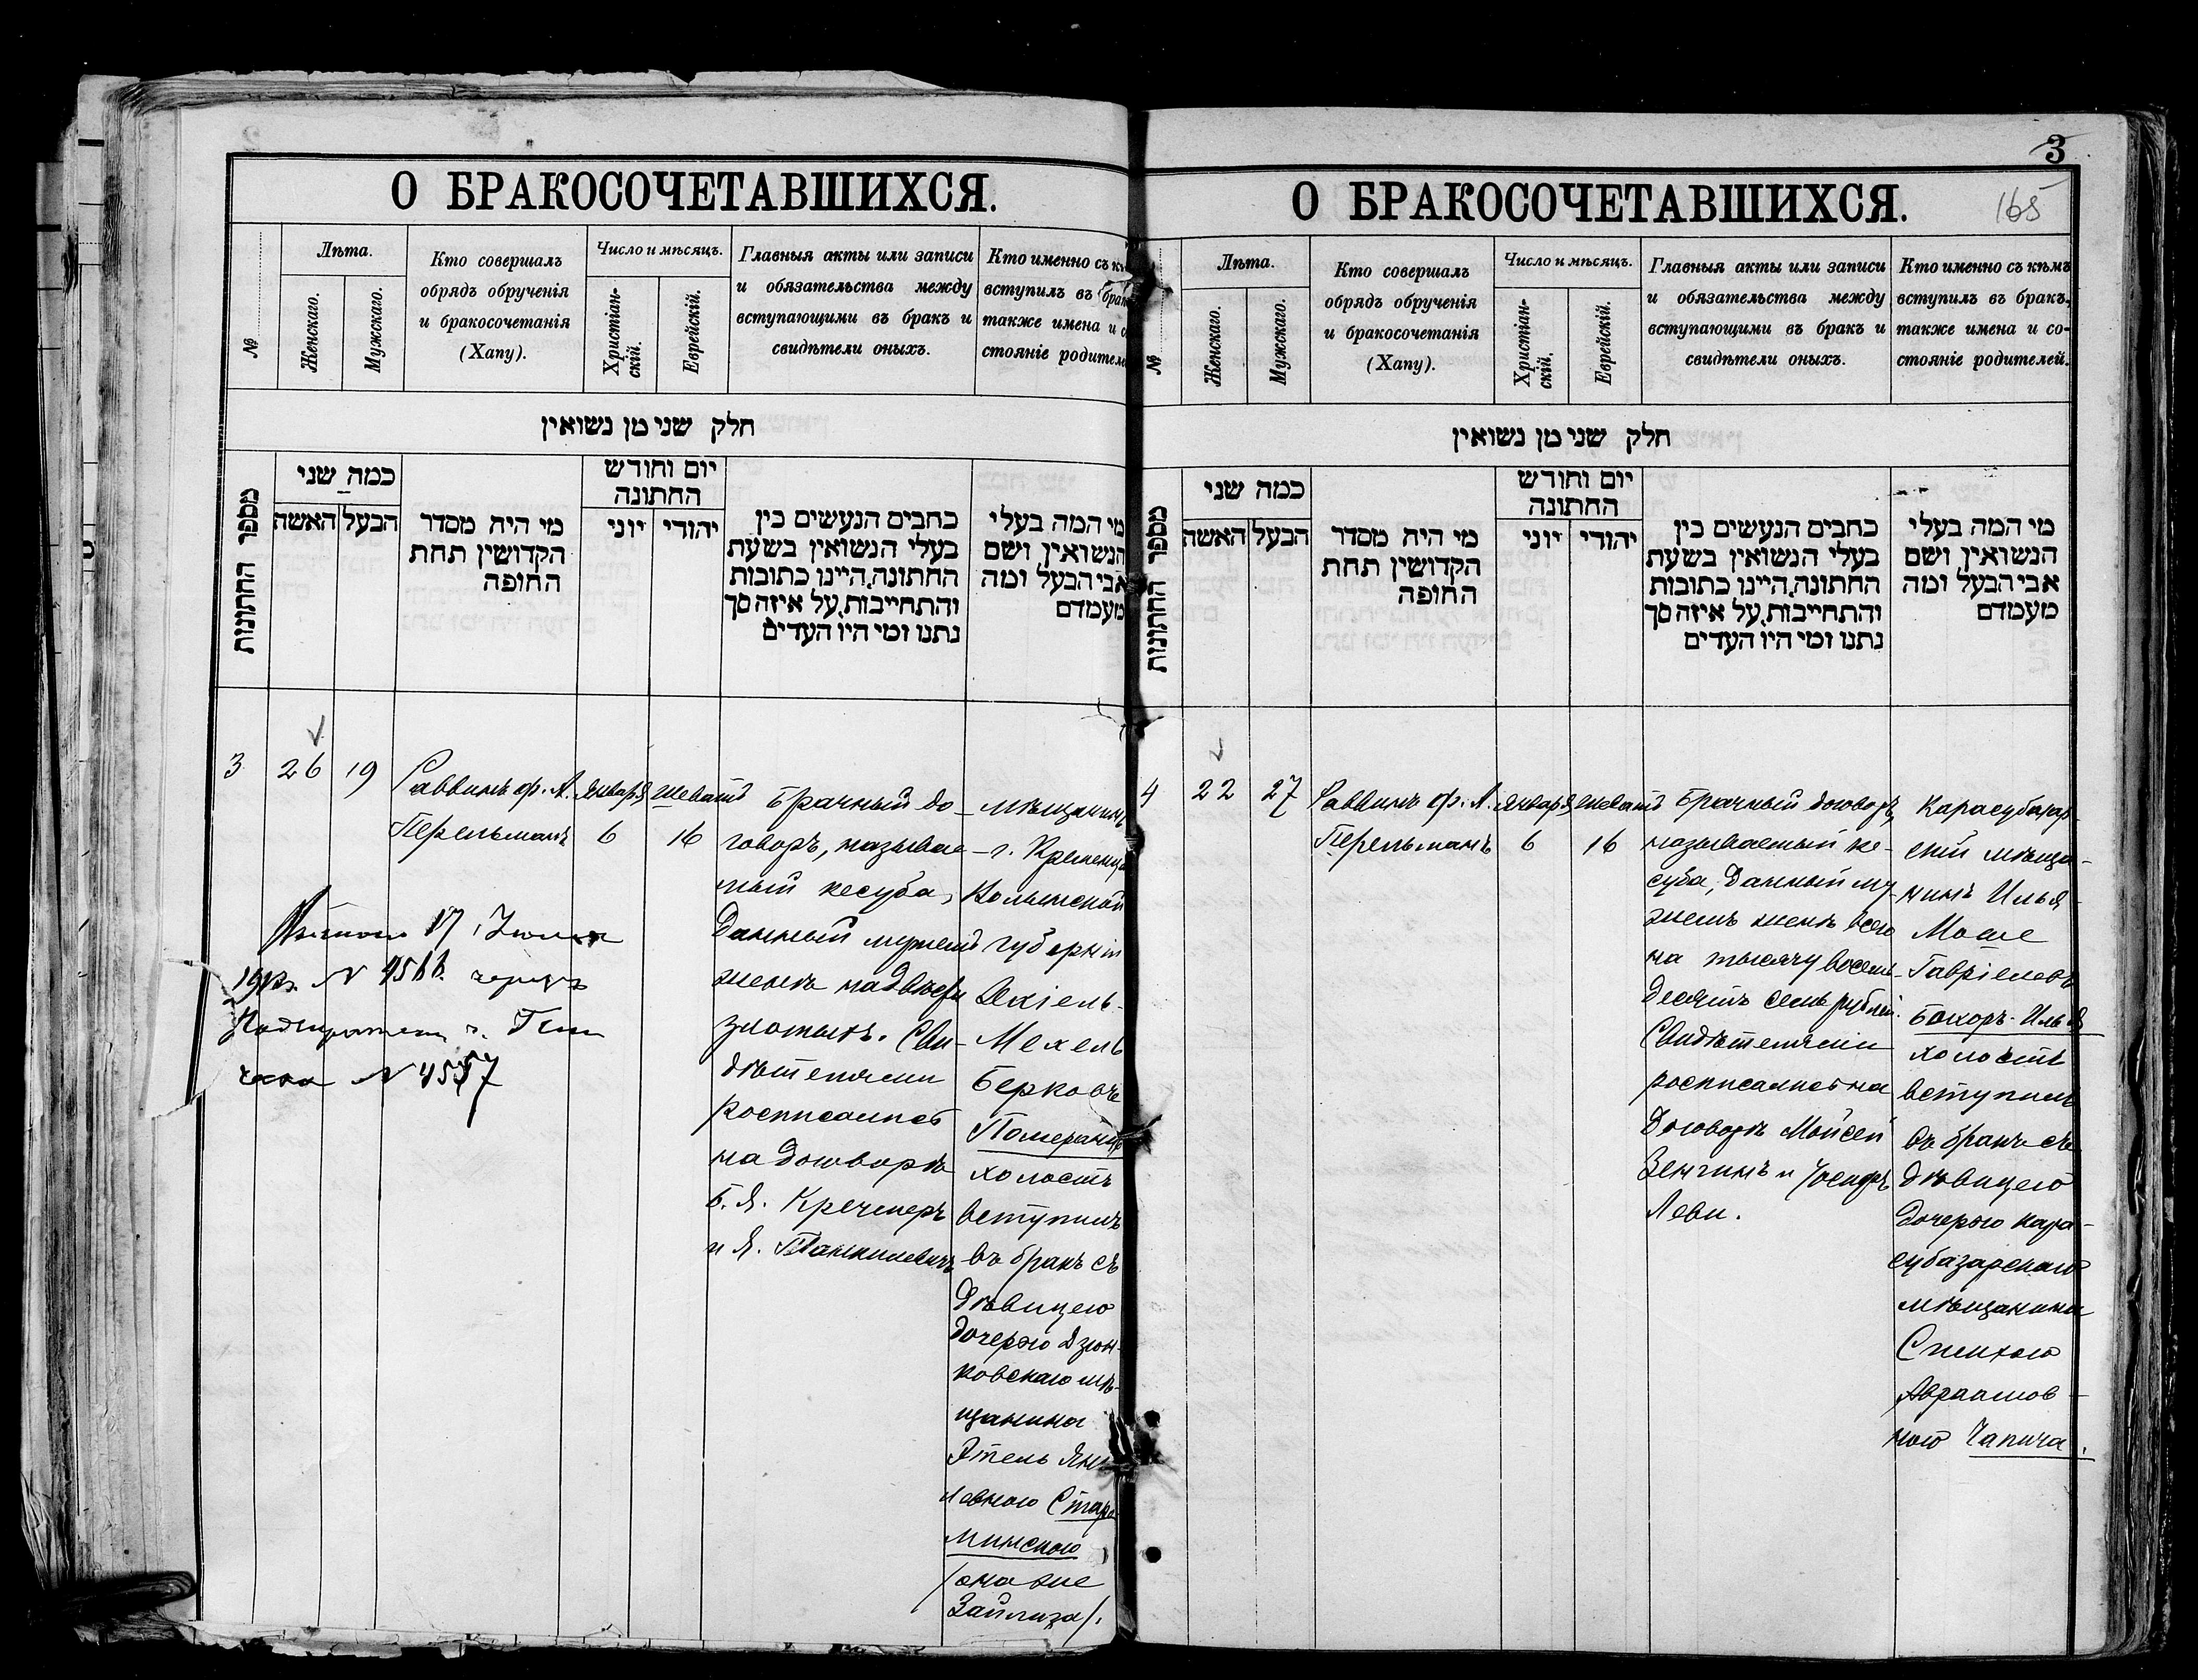 О БРАКОСОЧЕТАВШИХСЯ.
№
Лѣта.
Женскаго.
Мужскаго.
Кто совершалъ
обрядъ обрученія
и бракосочетанія
(Хапу).
Число и мѣсяцъ.
Христіан-
скій.
Еврейскій.
Главныя акты или записи
и обязательства между
вступающими въ бракъ и
свидѣтели оныхъ.
Кто именно съ
вступилъ въ
также имена и
стояніе
חלק שני מן נשואין
מספר החתונות
כמה שני
הבעל
האשה
מי היה מסדר
הקדושין תחת
החופה
יום וחודש
החתונה
יהודי
יוני
כתבים הנעשים בין
בעלי הנשואין בשעת
החתונה, היינו כתובות
והתחייבות, על איזה סך
נתנו ומי היו העדים
מי המה בעלי
הנשואין ושם
אבי הבעל ומה
מעמדם
3
26
19
Раввинъ ф. А.
Перельманъ
Января
6
Шеватъ
16
Брачный до-
говоръ, называе-
мый кесуба,
данный мужемъ
женѣ на двѣсти
злотыхъ. Сви-
дѣтелями
росписались
на договорѣ
Б. Я. Кречмеръ
и Я.
мѣщанинъ
г. Кременца
Волынской
губерніи
Мехель
Берковъ
Померанцъ
холостъ
вступилъ
въ бракъ съ
дѣвицею
дочерью Дзюн-
ковскаго мѣ-
щанина
Этель
Старо-
минскою
/она же
17
№
№ 4557
3
165
О БРАКОСОЧЕТАВШИХСЯ.
№
Лѣта.
Женскаго.
Мужскаго.
Кто совершалъ
обрядъ обрученія
и бракосочетанія
(Хапу).
Число и мѣсяцъ.
Христіан-
скій.
Еврейскій.
Главныя акты или записи
и обязательства между
вступающими въ бракъ и
свидѣтели оныхъ.
Кто именно съ кѣмъ
вступилъ въ бракъ,
также имена и со-
стояніе родителей.
חלק שני מן נשואין
מספר החתונות
כמה שני
הבעל
האשה
מי היה מסדר
הקדושין תחת
החופה
יום וחודש
החתונה
יהודי
יוני
כתבים הנעשים בין
בעלי הנשואין בשעת
החתונה, היינו כתובות
והתחייבות, על איזה סך
נתנו ומי היו העדים
מי המה בעלי
הנשואין ושם
אבי הבעל ומה
מעמדם
4
22
27
Раввинъ ф. А.
Перельманъ
Января
6
Шеватъ
16
Брачный договоръ,
называемый ке-
суба, данный му-
жемъ женѣ всего
на тысячу восемь-
десятъ семь рублей.
Свидѣтелями
росписались на
договорѣ Мойсей
Венгинъ и Іосифъ
Леви.
Карасубазар-
скій мѣща-
нинъ Илья
Моше
Гавріеловъ
Бохоръ-Илья
холостъ
вступилъ
въ бракъ съ
дѣвицею
дочерью кара-
субазарскаго
мѣщанина
Симхою
Авраамов-
ною Чапича.